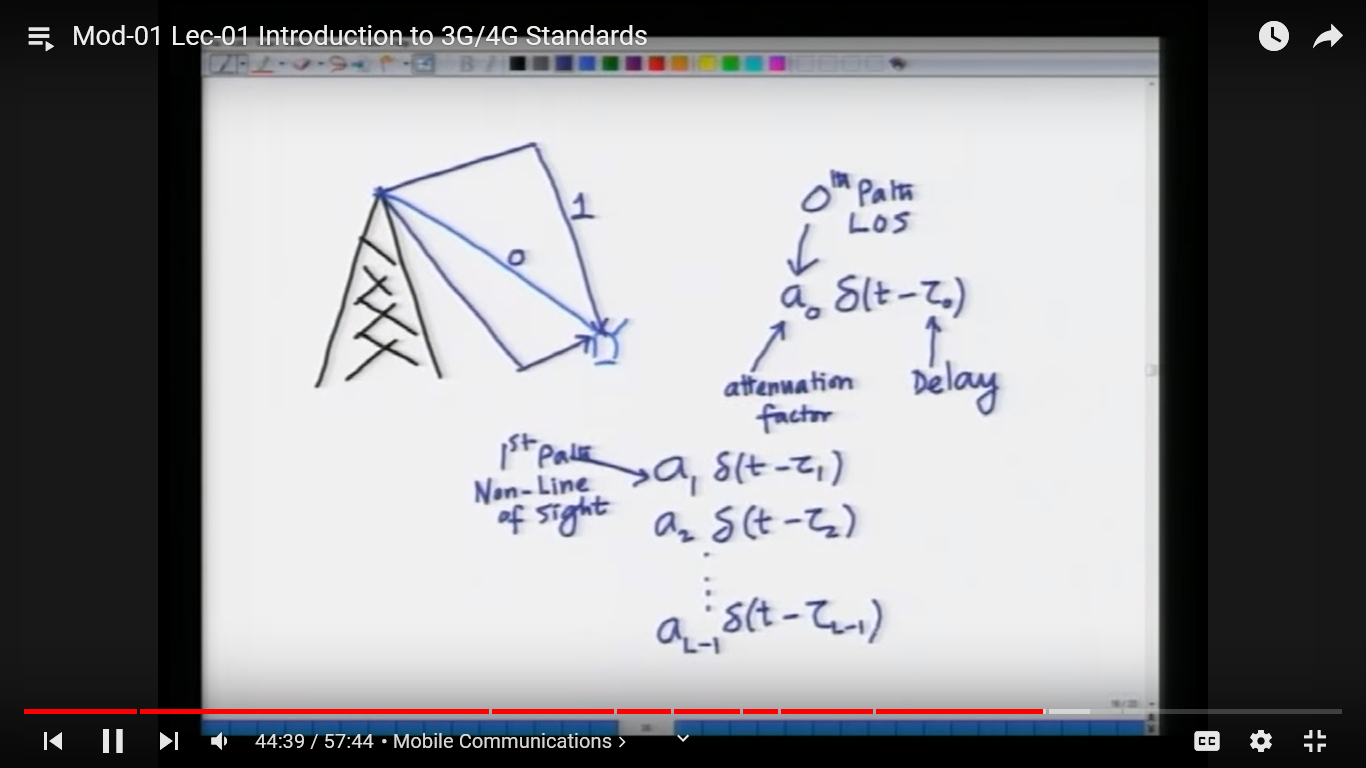 Mod-01 Lec-01 Introduction to 3G/4G Standards
B I
1
0
0th Path
LOS
a₀ δ(t-τ₀)
attenuation
factor
Delay
1st Path
Non-Line
of Sight
a₁ δ(t-τ₁)
a₂ δ(t-τ₂)
⋮
a_{L-1} δ(t-τ_{L-1})
44:39 / 57:44 • Mobile Communications ›
CC